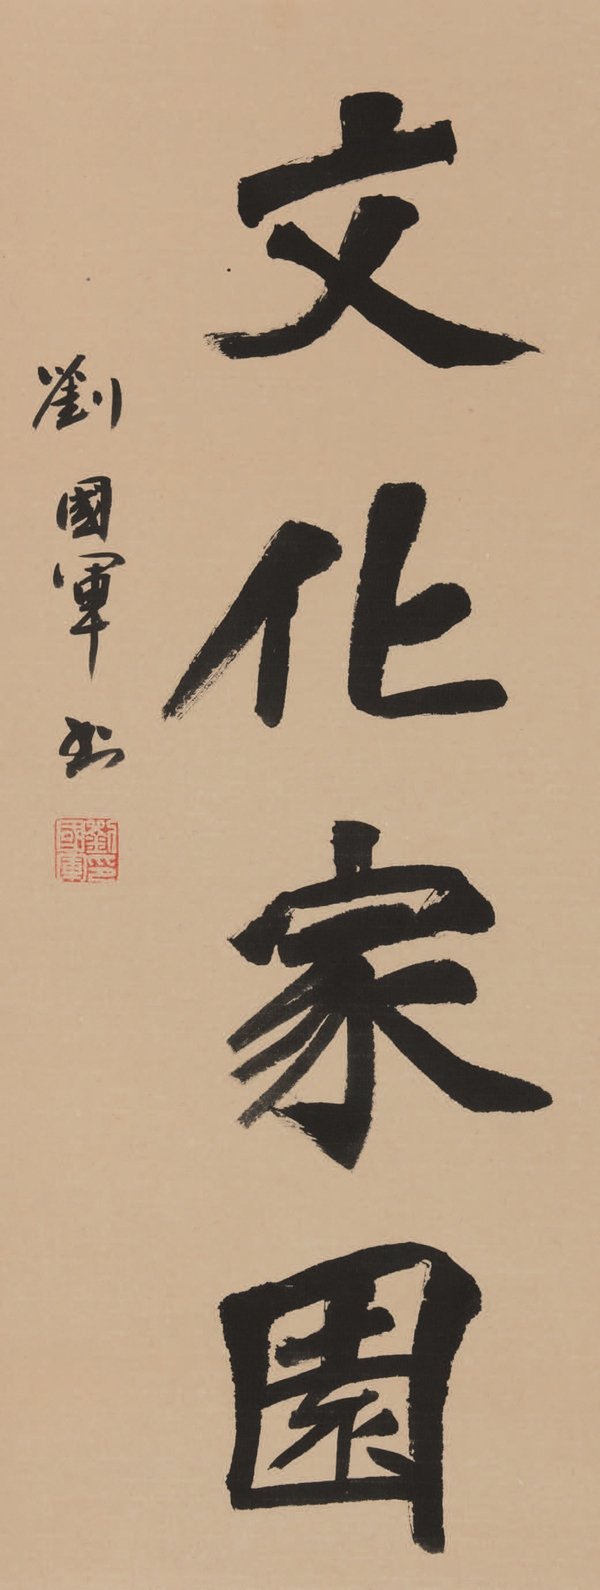 文化家園
劉國軍书
劉國軍印